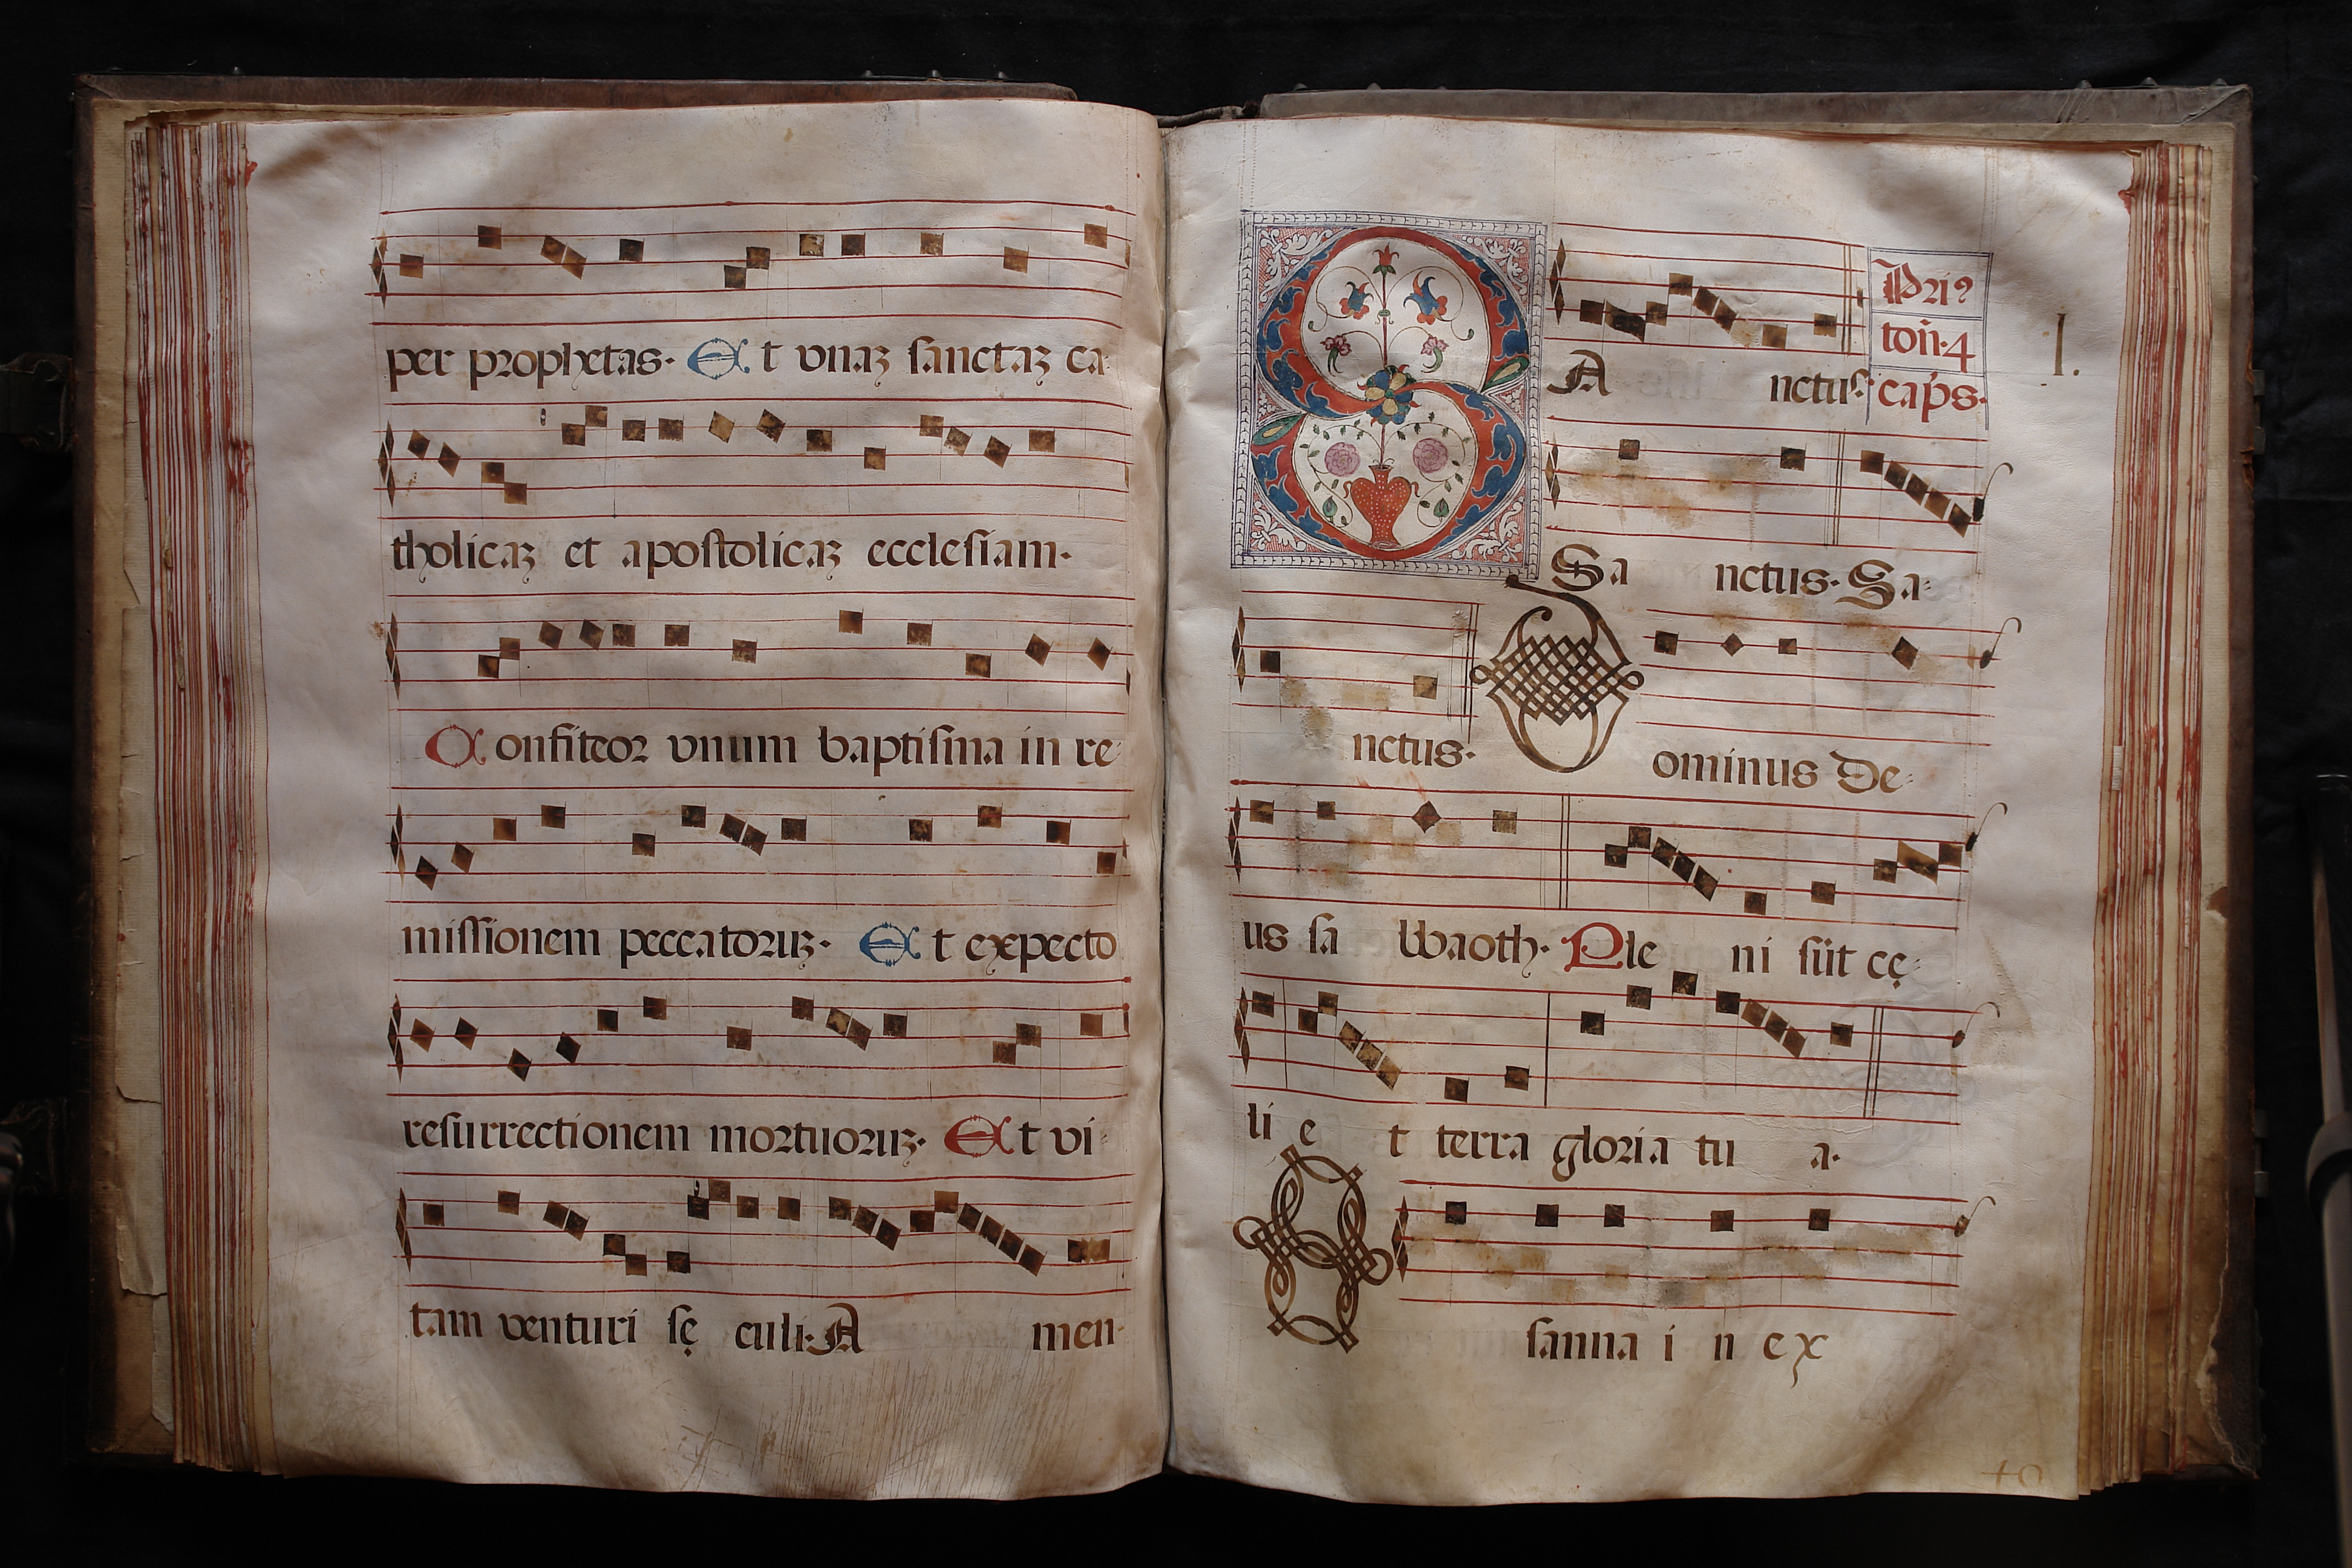 per prophetas. Et vnaȝ sanctaȝ ca
tholicaȝ et apostolicaȝ ecclesiam.
Confiteor vnum baptisma in re
missionem peccatoruȝ. Et expecto
resurrectionem mortuoruȝ. Et vi
tam venturi sę culi. A men.
SA nctus.
Sa nctus. Sa
nctus. Dominus De
us sa bbaoth. Ple ni sūt cę
li e t terra gloria tu a.
Osanna i n ex
Pri?
toñ. 4
cap̄s.
I.